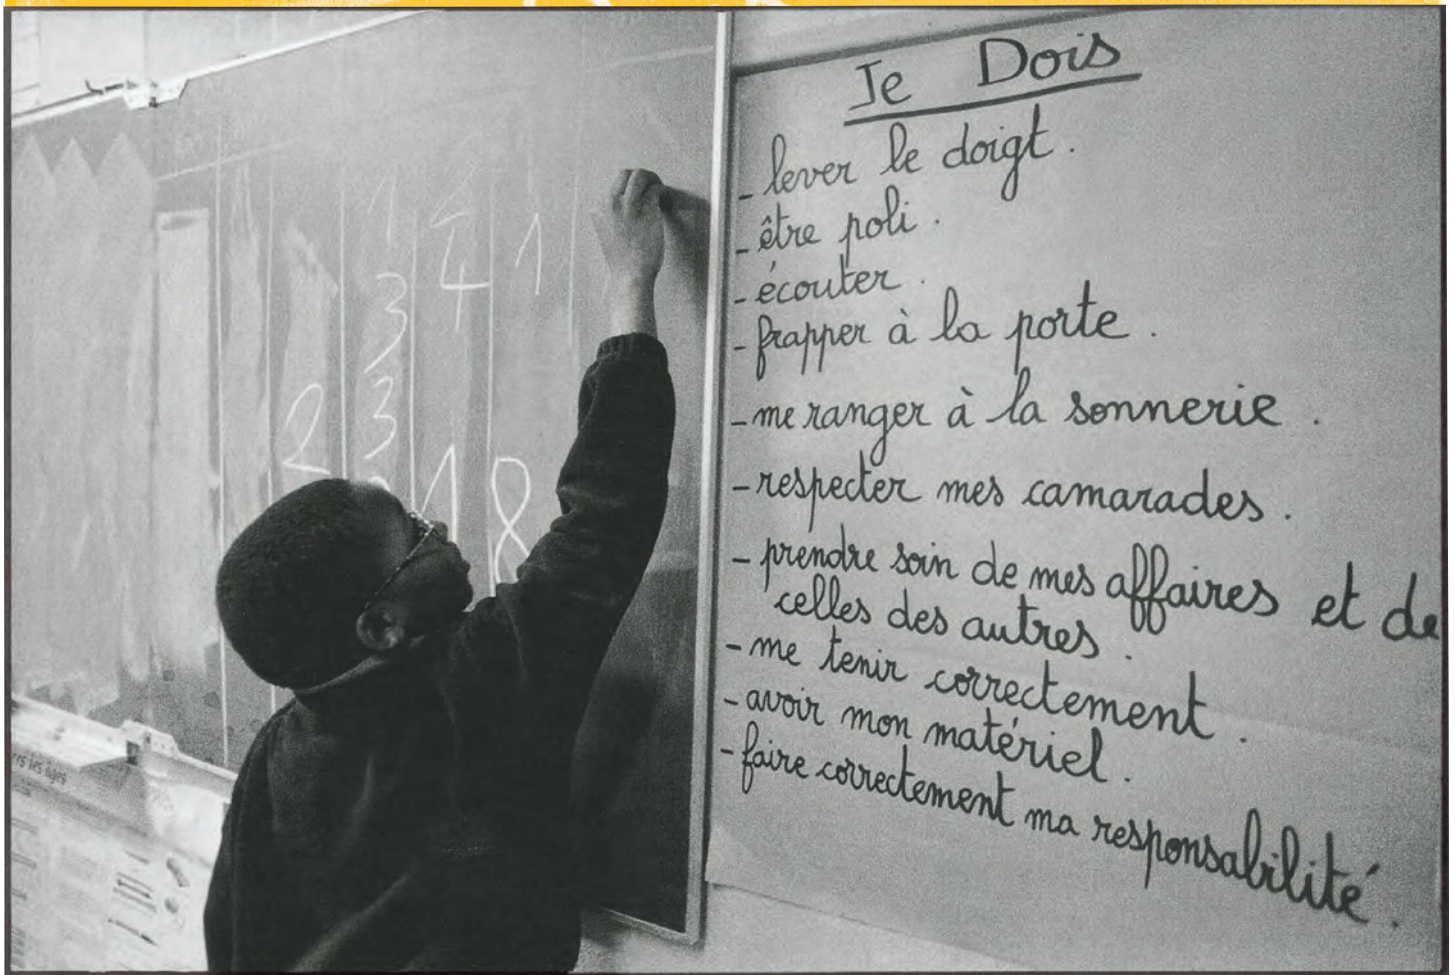 Je Dois
- lever le doigt.
- être poli.
- écouter.
- frapper à la porte.
- me ranger à la sonnerie.
- respecter mes camarades.
- prendre soin de mes affaires et de
celles des autres.
- me tenir correctement.
- avoir mon matériel.
- faire correctement ma responsabilité.
1
4 1
3
2 3
1 8
les âges